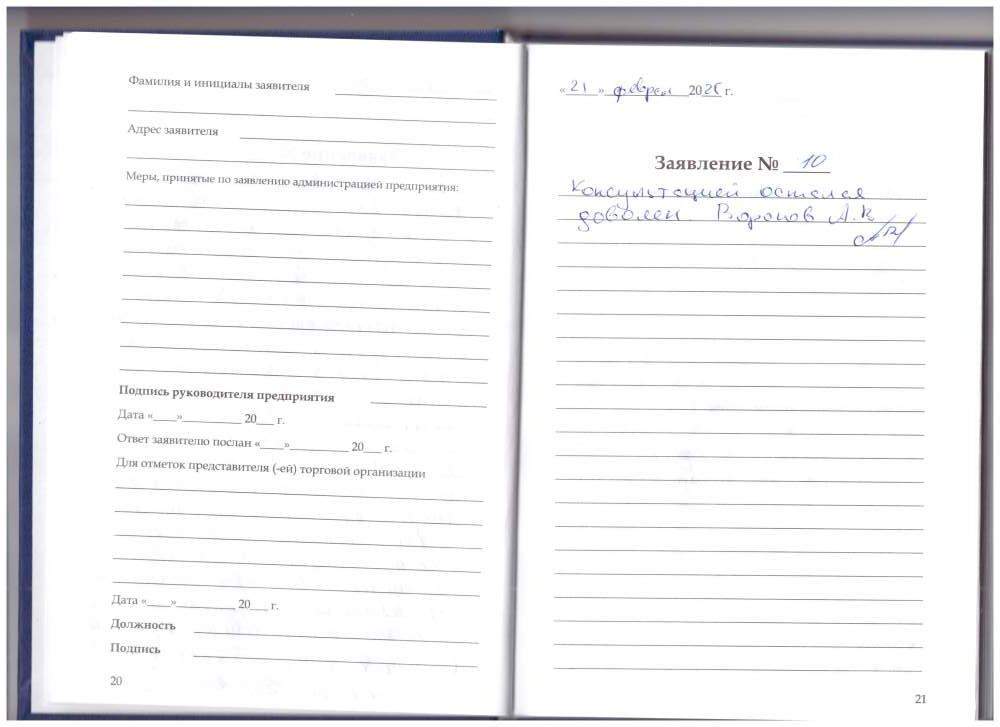 Фамилия и инициалы заявителя
Адрес заявителя
Меры, принятые по заявлению администрацией предприятия:
Подпись руководителя предприятия
Дата «____»__________ 20___ г.
Ответ заявителю послан «____»__________ 20___ г.
Для отметок представителя (-ей) торговой организации
Дата «____»__________ 20___ г.
Должность
Подпись
20
«21» феврал 20 г.
Заявление № 10
Консультацией остался
доволен. А.В
21